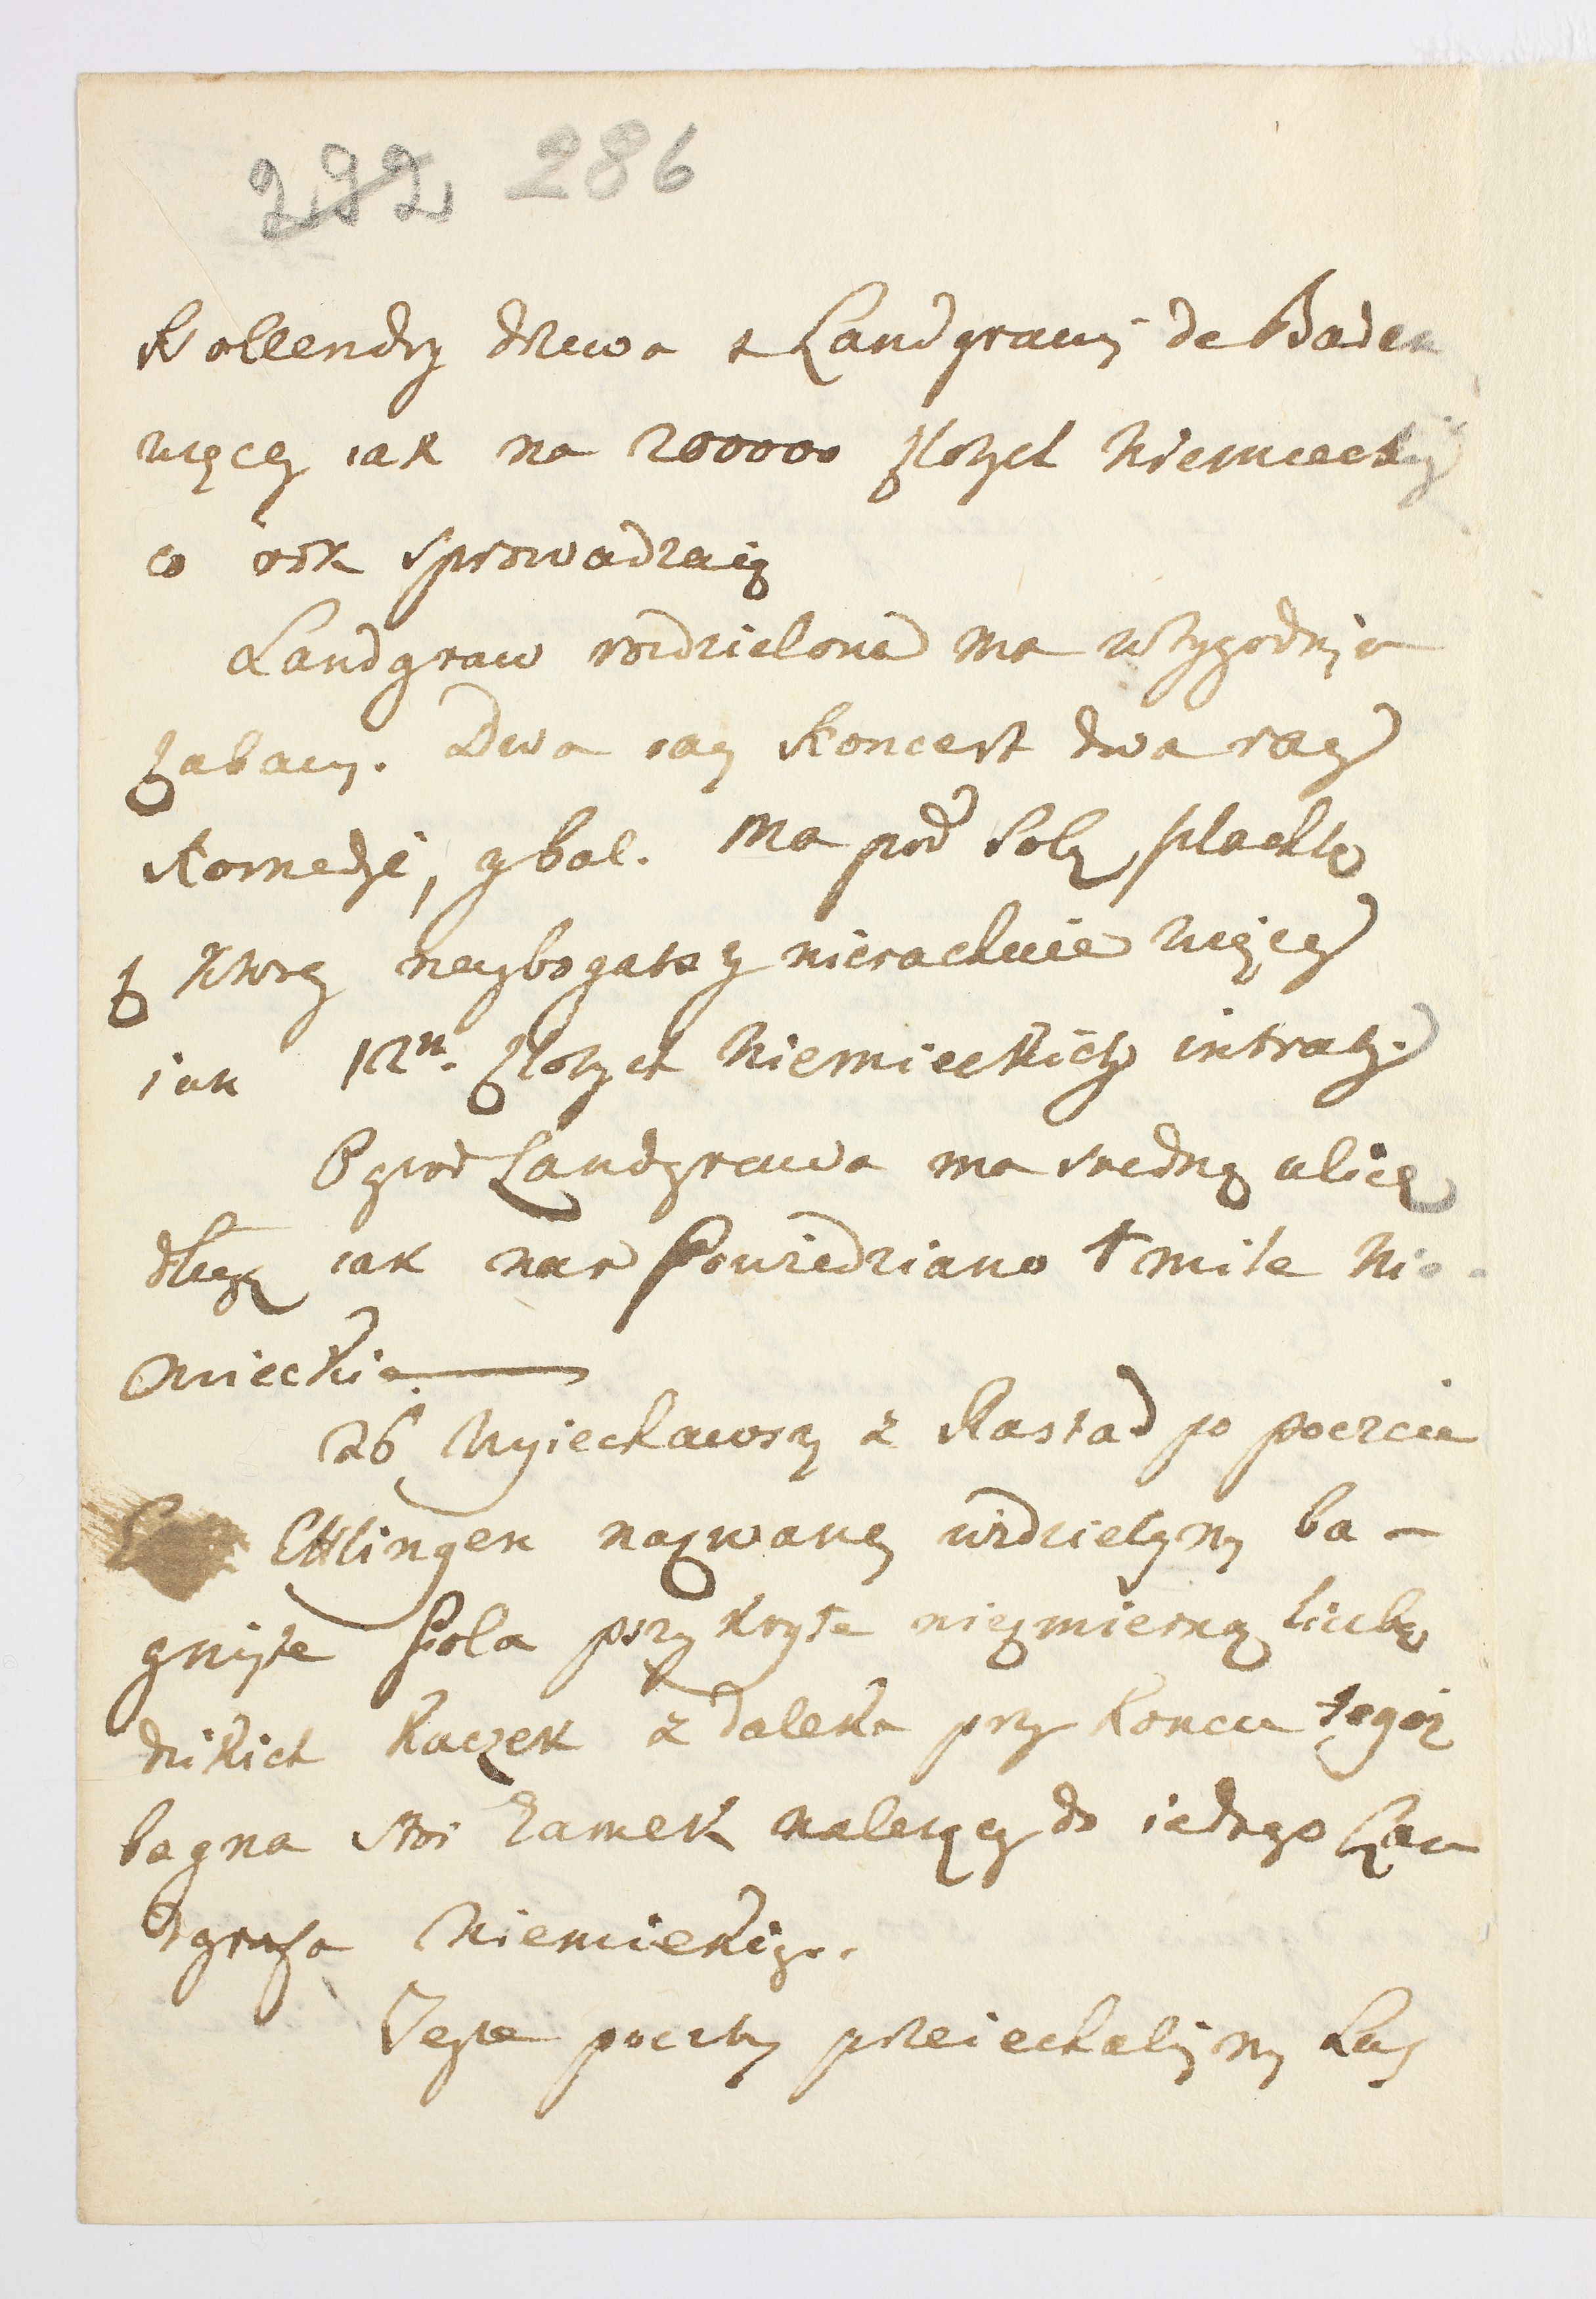 292 286
Hollendrzy drzewa z Landgrawij de Baden
więcey iak na 200000 złotych Niemieckij
co rok sprowadzaią
Landgraw rozdzielone ma w tygodniu
zabawy. Dwa razy Koncert dwa razy
Komedyi, y bal. Ma pod sobą szlachtę
z Ktorey naybogatszy nierachuie więcey
iak 12 n. złotych Niemieckich intraty.
Ogrod Landgrawa ma srednią ulicę
długą iak nas Powiedziano 1 mile Nie-
mieckie
26 Wyiechawszy z Rastad po poczcie
Ettlingen nazwaney widzielyśmy ba-
gniste Pola przykryte niezmierną liczbą
dzikich Kaczek z daleka przy Koncu tegoż
bagna stoi Zamek należący do iednego Lan
dgrafa Niemieckiego.
Teyże poczty przeiechalismy Las